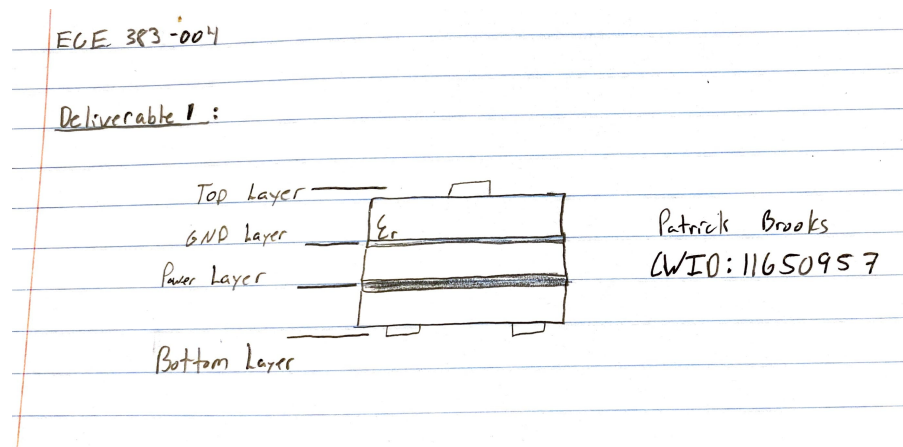 ECE 383-004
Deliverable 1:
Top Layer
GND Layer
Power Layer
Bottom Layer
Ɛr
Patrick Brooks
CWID: 11650957